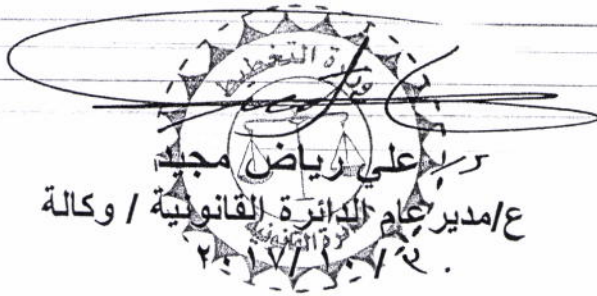 وزارة التخطيط
علي رياض مجيد
ع/مدير عام الدائرة القانونية / وكالة
الدائرة القانونية
٢٠١٧/١٠/